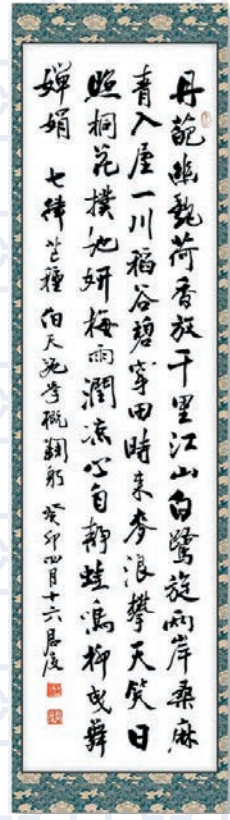 丹葩幽艷荷香放千里江山白鷺旋兩岸桑麻
青入崖一川稻谷碧穿田時来麥浪攀天笑日
照桐花撲地妍梅雨潤心自靜蛙鳴柳曳舞
嬋娟 七律芒種 伯天鞠躬 癸卯四月十六